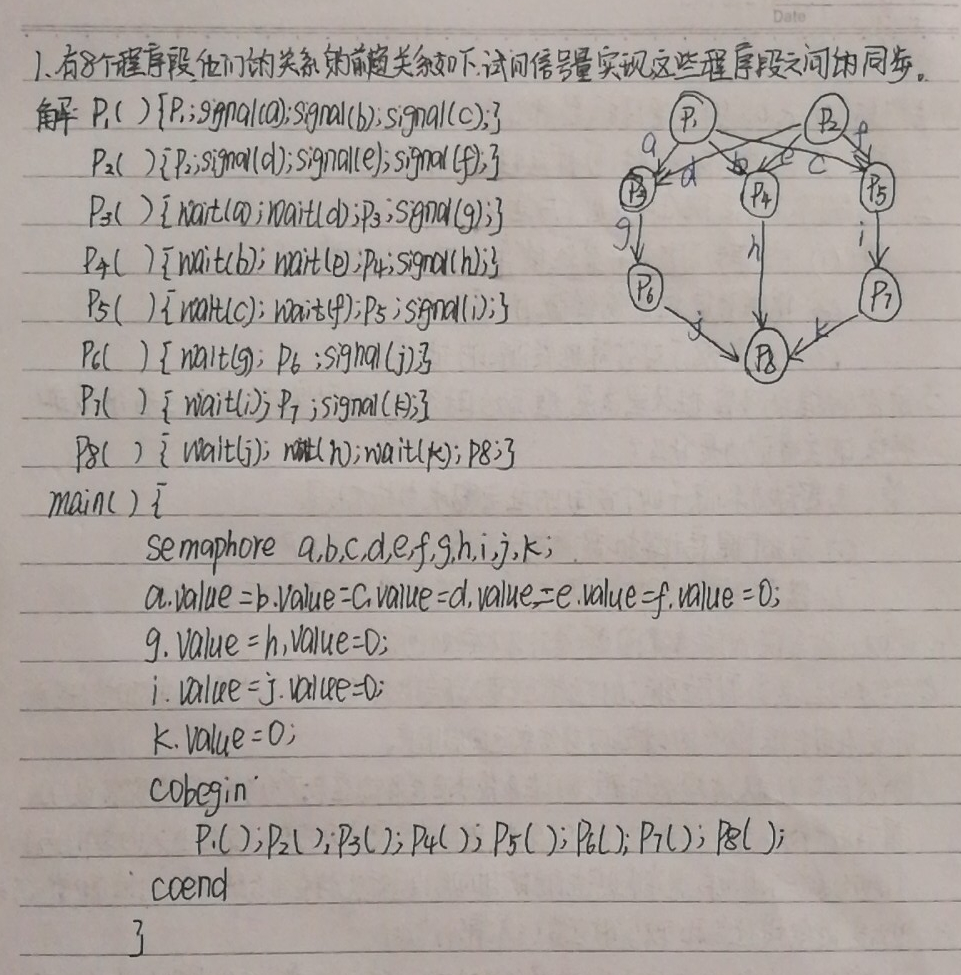 Date
1.有8个程序段他们的关系的前趋关系如下.试问信号量实现这些程序段之间的同步。
解 P1( ){P1;signal(a);signal(b);signal(c);}
P2( ){P2;signal(d);signal(e);signal(f);}
P3( ){wait(a);wait(d);P3;signal(g);}
P4( ){wait(b);wait(e);P4;signal(h);}
P5( ){wait(c);wait(f);P5;signal(i);}
P6( ){wait(g);P6;signal(j);}
P7( ){wait(i);P7;signal(k);}
P8( ){wait(j);wait(h);wait(k);P8;}
main( ){
semaphore a,b,c,d,e,f,g,h,i,j,k;
a.value=b.value=c.value=d.value=e.value=f.value=0;
g.value=h.value=0;
i.value=j.value=0;
k.value=0;
cobegin
P1( );P2( );P3( );P4( );P5( );P6( );P7( );P8( );
coend
}
P1 P2
a d b e c f
P3 P4 P5
g h i
P6 P7
j k
P8